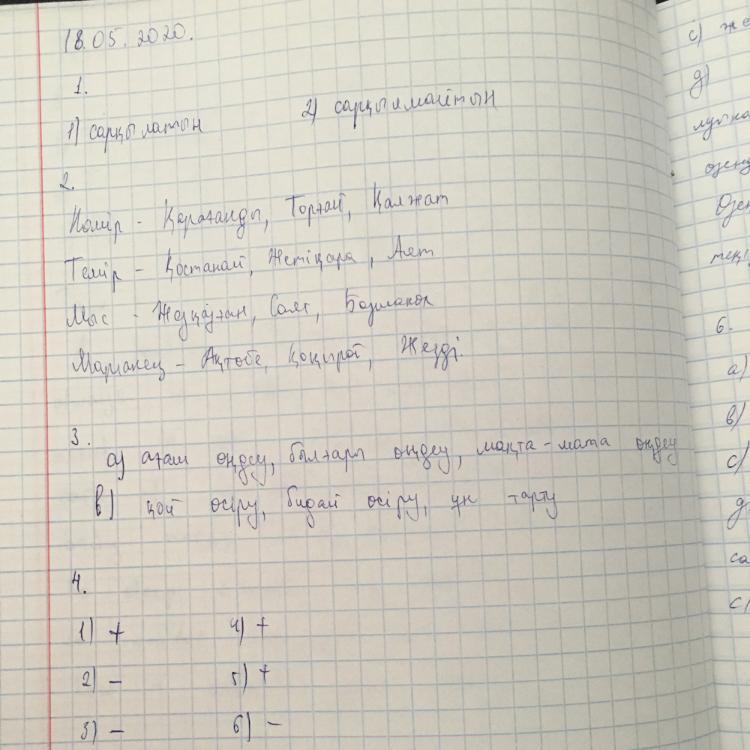 18.05.2020.
1.
1) сарқылатын 2) сарқылмайтын
2.
Көмір - Қарағанды, Торғай, Қалжат
Темір - Қостанай, Жетіқара, Аят
Мыс - Жезқазған, Саяқ, Бозшакөл
Марганец - Ақтөбе, Қоңырат, Жезді.
3.
а) ағаш өңдеу, былғары өңдеу, мақта-мата өңдеу
в) қой өсіру, бидай өсіру, ұн тарту
4.
1) + 4) +
2) - 5) +
3) - 6) -
с) же
д)
6.
а)
в)
с)
д
са
с)